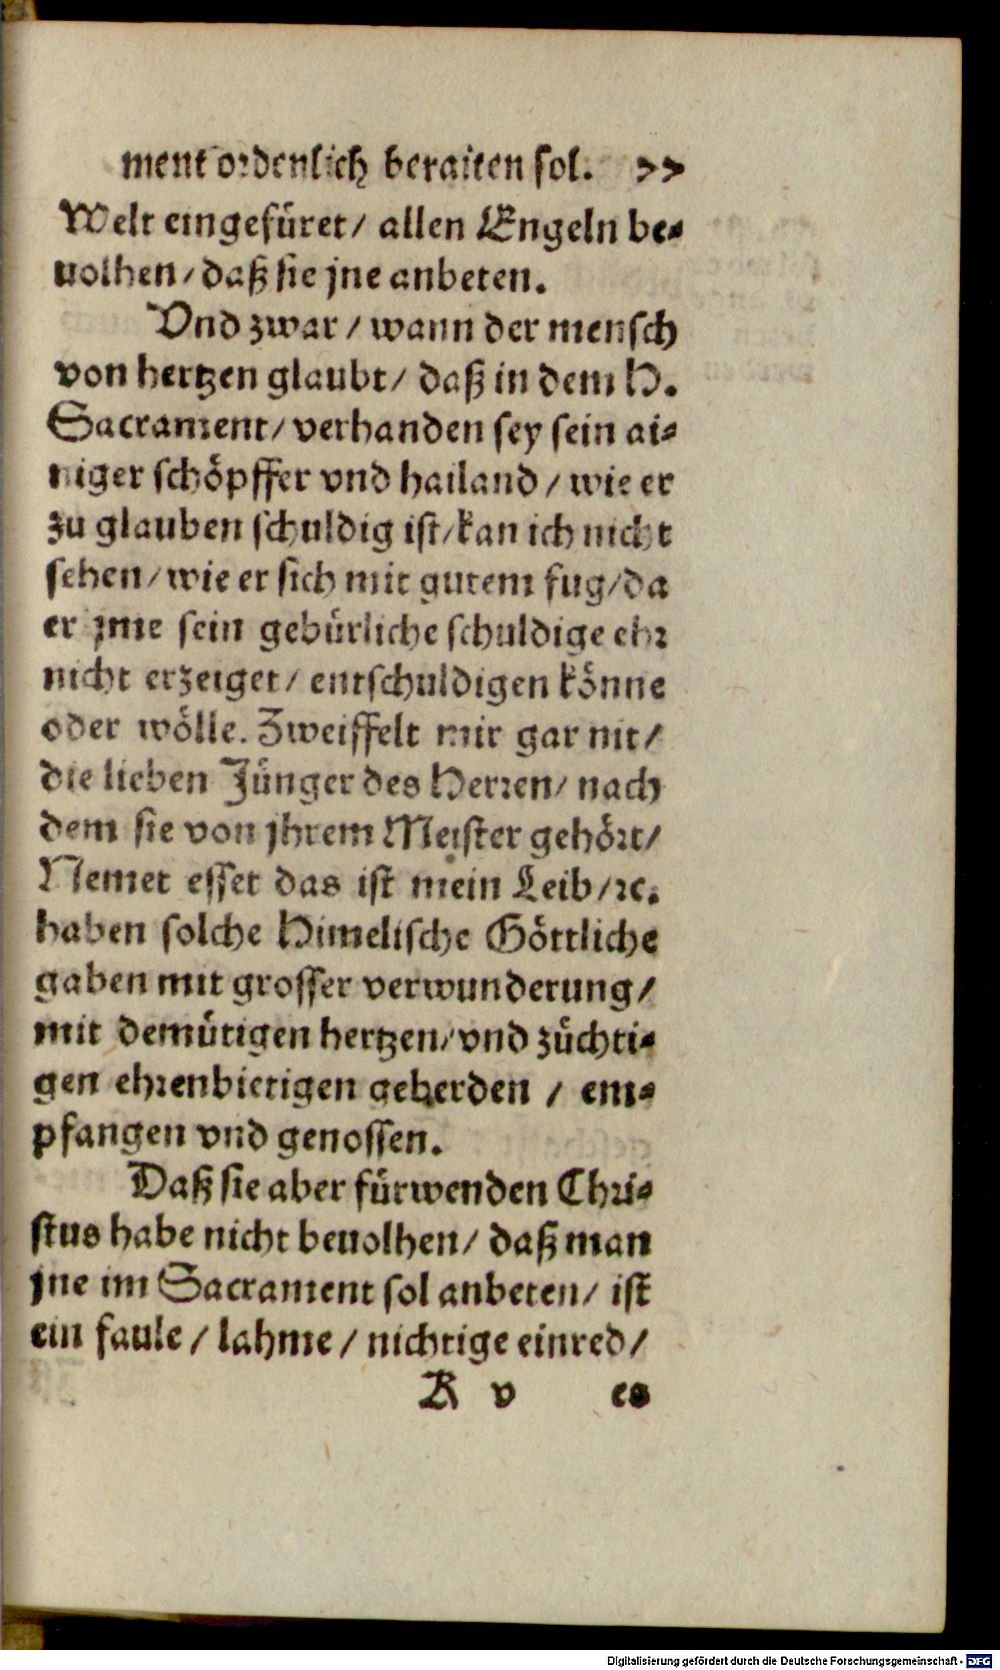 ment ordenlich beraiten sol. 77
Welt eingefüret/ allen Engeln be-
uolhen/ daß sie jne anbeten.
Vnd zwar/ wann der mensch
von hertzen glaubt/ daß in dem H.
Sacrament/ verhanden sey sein ai-
niger schöpffer vnd hailand/ wie er
zu glauben schuldig ist/ kan ich nicht
sehen/ wie er sich mit gutem fug/ da
er jme sein gebürliche schuldige ehr
nicht erzeiget/ entschuldigen könne
oder wölle. Zweiffelt mir gar nit/
die lieben Jünger des Herren/ nach
dem sie von jhrem Meister gehört/
Nemet esset das ist mein Leib/ ꝛc.
haben solche Himelische Göttliche
gaben mit grosser verwunderung/
mit demütigen hertzen/ vnd züchti-
gen ehrenbietigen geberden/ em-
pfangen vnd genossen.
Daß sie aber fürwenden Chri-
stus habe nicht beuolhen/ daß man
jne im Sacrament sol anbeten/ ist
ein faule/ lahme/ nichtige einred/
K v es
Digitalisierung gefördert durch die Deutsche Forschungsgemeinschaft - DFG